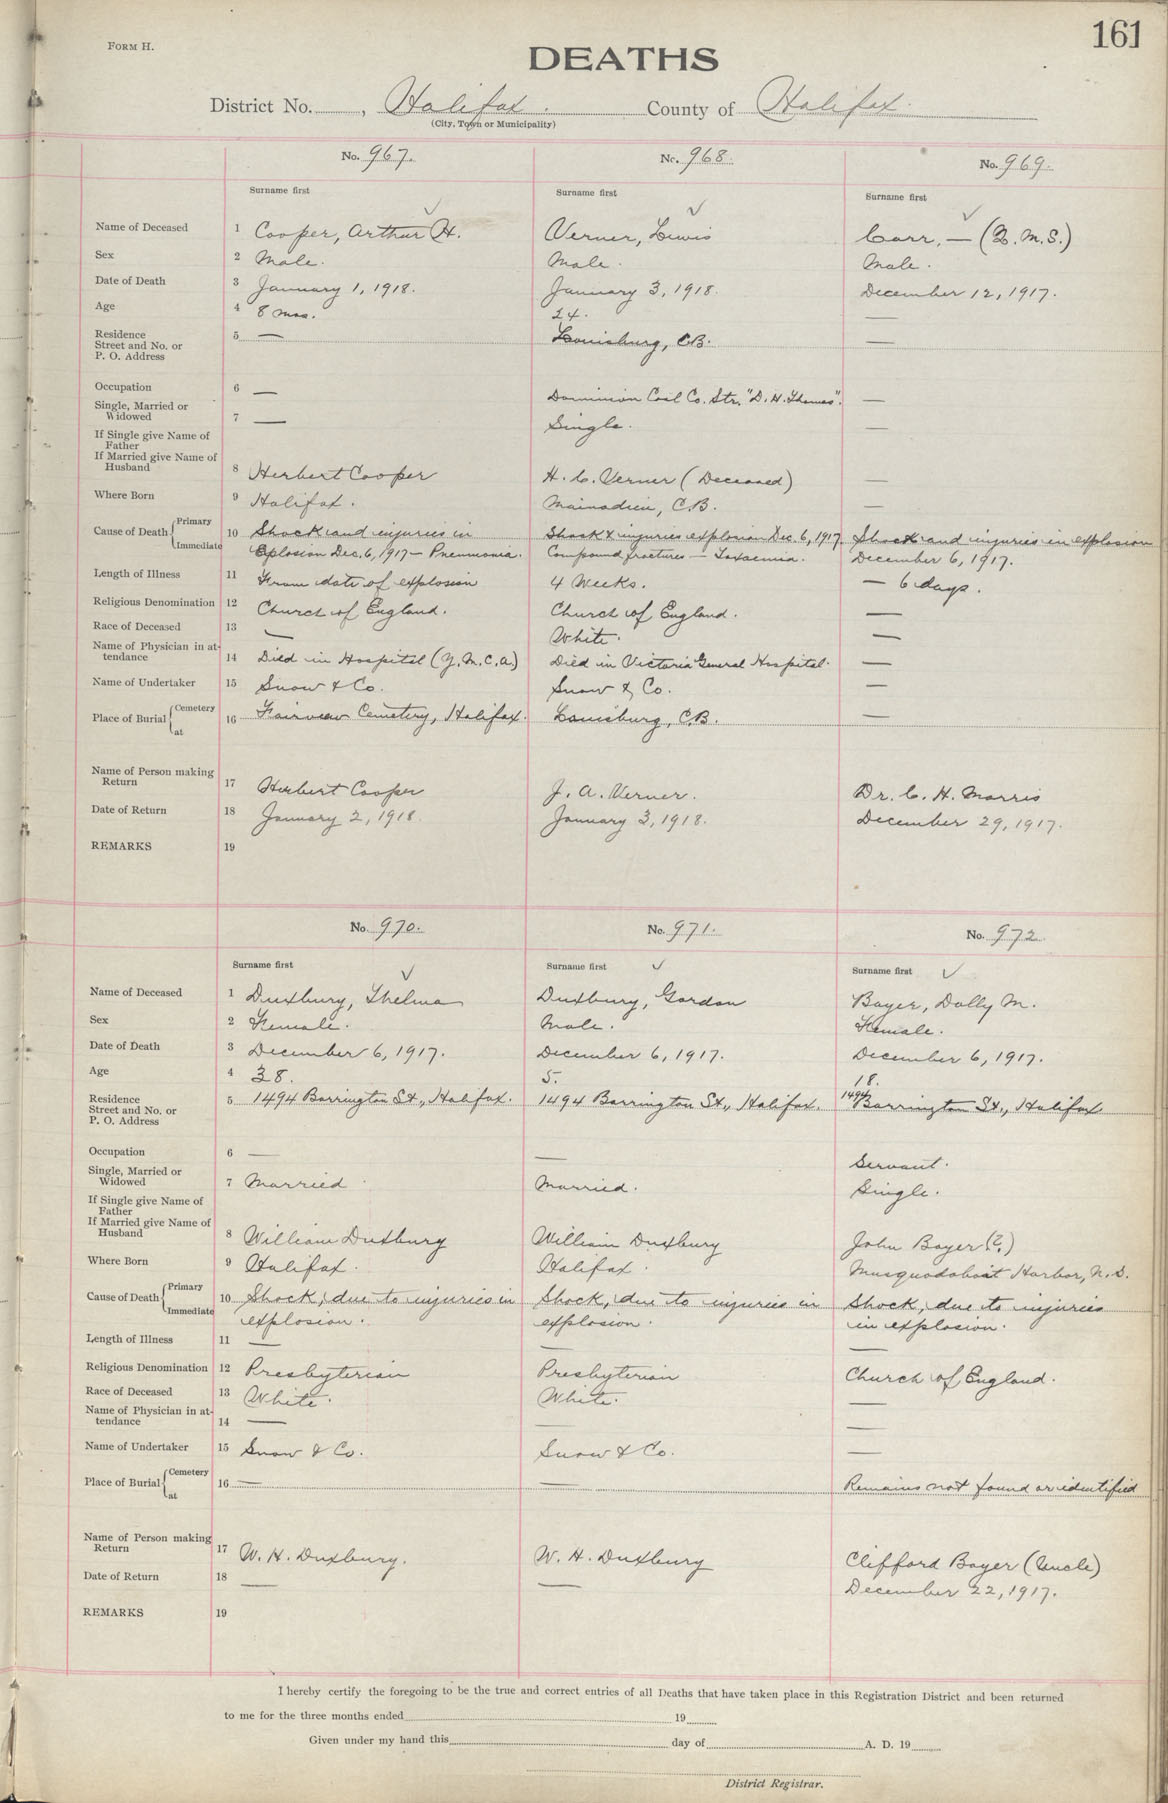 161
FORM H.
DEATHS
District No. , Halifax. County of Halifax.
(City, Town or Municipality)
No. 967. No. 968. No. 969.
Surname first Surname first Surname first
Name of Deceased 1 Cooper, Arthur H. Verner, Lewis Carr, — (Q.M.S.)
Sex 2 Male. Male. Male.
Date of Death 3 January 1, 1918. January 3, 1918. December 12, 1917.
Age 4 8 mos. 24. —
Residence
Street and No. or 5 — Louisburg, C.B. —
P. O. Address
Occupation 6 — Dominion Coal Co. Str. "D. H. Thomas". —
Single, Married or
Widowed 7 — Single. —
If Single give Name of
Father
If Married give Name of
Husband 8 Herbert Cooper H. C. Verner (Deceased) —
Where Born 9 Halifax. Mainadieu, C.B. —
Cause of Death Primary 10 Shock and injuries in Shock & injuries explosion Dec. 6, 1917. Shock and injuries in explosion
Immediate Explosion Dec. 6, 1917 — Pneumonia. Compound fractures — Toxaemia. December 6, 1917.
Length of Illness 11 From date of explosion 4 Weeks. — 6 days.
Religious Denomination 12 Church of England. Church of England. —
Race of Deceased 13 — White. —
Name of Physician in at-
tendance 14 Died in Hospital (Y.M.C.A.) Died in Victoria General Hospital. —
Name of Undertaker 15 Snow & Co. Snow & Co. —
Place of Burial Cemetery 16 Fairview Cemetery, Halifax. Louisburg, C.B. —
at
Name of Person making
Return 17 Herbert Cooper J. A. Verner. Dr. C. H. Morris
Date of Return 18 January 2, 1918. January 3, 1918. December 29, 1917.
REMARKS 19
No. 970. No. 971. No. 972.
Surname first Surname first Surname first
Name of Deceased 1 Duxbury, Thelma Duxbury, Gordon Boyer, Dolly M.
Sex 2 Female. Male. Female.
Date of Death 3 December 6, 1917. December 6, 1917. December 6, 1917.
Age 4 38. 5. 18.
Residence
Street and No. or 5 1494 Barrington St., Halifax. 1494 Barrington St., Halifax. 1494 Barrington St., Halifax
P. O. Address
Occupation 6 — — Servant.
Single, Married or
Widowed 7 Married Married. Single.
If Single give Name of
Father
If Married give Name of
Husband 8 William Duxbury William Duxbury John Boyer (?)
Where Born 9 Halifax. Halifax. Musquodoboit Harbor, N.S.
Cause of Death Primary 10 Shock, due to injuries in Shock, due to injuries in Shock, due to injuries
Immediate explosion. explosion. in explosion.
Length of Illness 11 — — —
Religious Denomination 12 Presbyterian Presbyterian Church of England.
Race of Deceased 13 White. White. —
Name of Physician in at-
tendance 14 — — —
Name of Undertaker 15 Snow & Co. Snow & Co. —
Place of Burial Cemetery 16 — — Remains not found or identified
at
Name of Person making
Return 17 W. H. Duxbury. W. H. Duxbury Clifford Boyer (Uncle)
Date of Return 18 — — December 22, 1917.
REMARKS 19
I hereby certify the foregoing to be the true and correct entries of all Deaths that have taken place in this Registration District and been returned
to me for the three months ended 19
Given under my hand this day of A. D. 19
District Registrar.